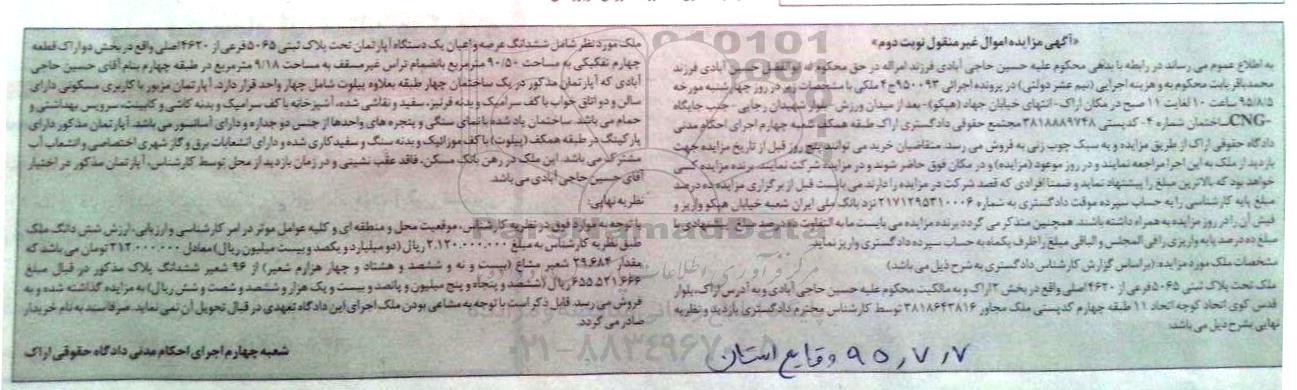 «آگهی مزایده اموال غیر منقول نوبت دوم»
به اطلاع عموم می رساند در رابطه با بدهی محکوم علیه حسین حاجی آبادی فرزند امراله در حق محکوم له ابوالفضل حسین آبادی فرزند
محمدباقر بابت محکوم به و هزینه اجرایی (نیم عشر دولتی) در پرونده اجرائی ۹۵۰۰۹۳ج۴ ملکی با مشخصات زیر در روز چهارشنبه مورخه
۹۵/۸/۵ ساعت ۱۰ لغایت ۱۱ صبح در مکان اراک- انتهای خیابان جهاد (هپکو)- بعد از میدان ورزش - بلوار شهیدان رجایی - جنب جایگاه
CNG- ساختمان شماره ۴- کدپستی ۳۸۱۸۸۸۹۷۴۸ مجتمع حقوقی دادگستری اراک طبقه همکف شعبه چهارم اجرای احکام مدنی
دادگاه حقوقی اراک از طریق مزایده و به سبک چوب زنی به فروش می رسد. متقاضیان خرید می توانند پنج روز قبل از تاریخ مزایده جهت
بازدید از ملک به این اجرا مراجعه نمایند و در روز موعود (مزایده) و در مکان فوق حاضر شوند و در مزایده شرکت نمایند. برنده مزایده کسی
خواهد بود که بالاترین مبلغ را پیشنهاد نماید و ضمنا افرادی که قصد شرکت در مزایده را دارند می بایست قبل از برگزاری مزایده ده درصد
مبلغ پایه کارشناسی را به حساب سپرده موقت دادگستری به شماره ۲۱۷۱۲۹۵۳۱۰۰۰۶ نزد بانک ملی ایران شعبه خیابان هپکو واریز و
فیش آن را در روز مزایده به همراه داشته باشند. همچنین متذکر می گردد برنده مزایده می بایست مابه التفاوت ده درصد مبلغ پیشنهادی با
مبلغ ده درصد پایه واریزی را فی المجلس و الباقی مبلغ را ظرف یکماه به حساب سپرده دادگستری واریز نماید.
مشخصات ملک مورد مزایده: (بر اساس گزارش کارشناس دادگستری به شرح ذیل می باشد)
ملک تحت پلاک ثبتی ۵۰۶۵ فرعی از ۴۶۲۰ اصلی واقع در بخش ۲ اراک و به مالکیت محکوم علیه حسین حاجی آبادی و به آدرس اراک، بلوار
قدس کوی اتحاد کوچه اتحاد ۱۱ طبقه چهارم کدپستی ملک مجاور ۳۸۱۸۶۴۳۸۱۶ توسط کارشناس محترم دادگستری بازدید و نظریه
نهایی بشرح ذیل می باشد:
ملک مورد نظر شامل ششدانگ عرصه و اعیان یک دستگاه آپارتمان تحت پلاک ثبتی ۵۰۶۵ فرعی از ۴۶۲۰ اصلی واقع در بخش دو اراک قطعه
چهارم تفکیکی به مساحت ۹۰/۵۰ مترمربع بانضمام تراس غیرمسقف به مساحت ۹/۱۸ مترمربع در طبقه چهارم بنام آقای حسین حاجی
آبادی که آپارتمان مذکور در یک ساختمان چهار طبقه بعلاوه پیلوت شامل چهار واحد قرار دارد. آپارتمان مزبور با کاربری مسکونی دارای
سالن و دو اتاق خواب با کف سرامیک و بدنه قرنیز، سفید و نقاشی شده، آشپزخانه با کف سرامیک و بدنه کاشی و کابینت، سرویس بهداشتی و
حمام می باشد. ساختمان یاد شده با نمای سنگی و پنجره های واحدها از جنس دو جداره و دارای آسانسور می باشد. آپارتمان مذکور دارای
پارکینگ در طبقه همکف (پیلوت) با کف موزائیک و بدنه سنگ و سفیدکاری شده و دارای انشعابات برق و گاز شهری اختصاصی و انشعاب آب
مشترک می باشد. این ملک در رهن بانک مسکن، فاقد عقب نشینی و در زمان بازدید از محل توسط کارشناس، آپارتمان مذکور در اختیار
آقای حسین حاجی آبادی می باشد.
نظریه نهایی:
با توجه به موارد فوق در نظریه کارشناس، موقعیت محل و منطقه ای و کلیه عوامل موثر در امر کارشناسی و ارزیابی، ارزش شش دانگ ملک
طبق نظریه کارشناس به مبلغ ۲.۱۲۰.۰۰۰.۰۰۰ ریال (دو میلیارد و یکصد و بیست میلیون ریال) معادل ۲۱۲.۰۰۰.۰۰۰ تومان می باشد که
مقدار ۲۹.۶۸۴ شعیر مشاع (بیست و نه و ششصد و هشتاد و چهار هزارم شعیر) از ۹۶ شعیر ششدانگ پلاک مذکور در قبال مبلغ
۶۵۵.۵۲۱.۶۶۶ ریال (ششصد و پنجاه و پنج میلیون و پانصد و بیست و یک هزار و ششصد و شصت و شش ریال) به مزایده گذاشته شده و به
فروش می رسد. قابل ذکر است با توجه به مشاعی بودن ملک اجرای این دادگاه تعهدی در قبال تحویل آن نمی نماید. صرفا سند به نام خریدار
صادر می گردد.
شعبه چهارم اجرای احکام مدنی دادگاه حقوقی اراک
۹۵,۷,۷ وقایع استان
ParsNamadData
۰۲۱-۸۸۳۴۹۶۷۰-۵